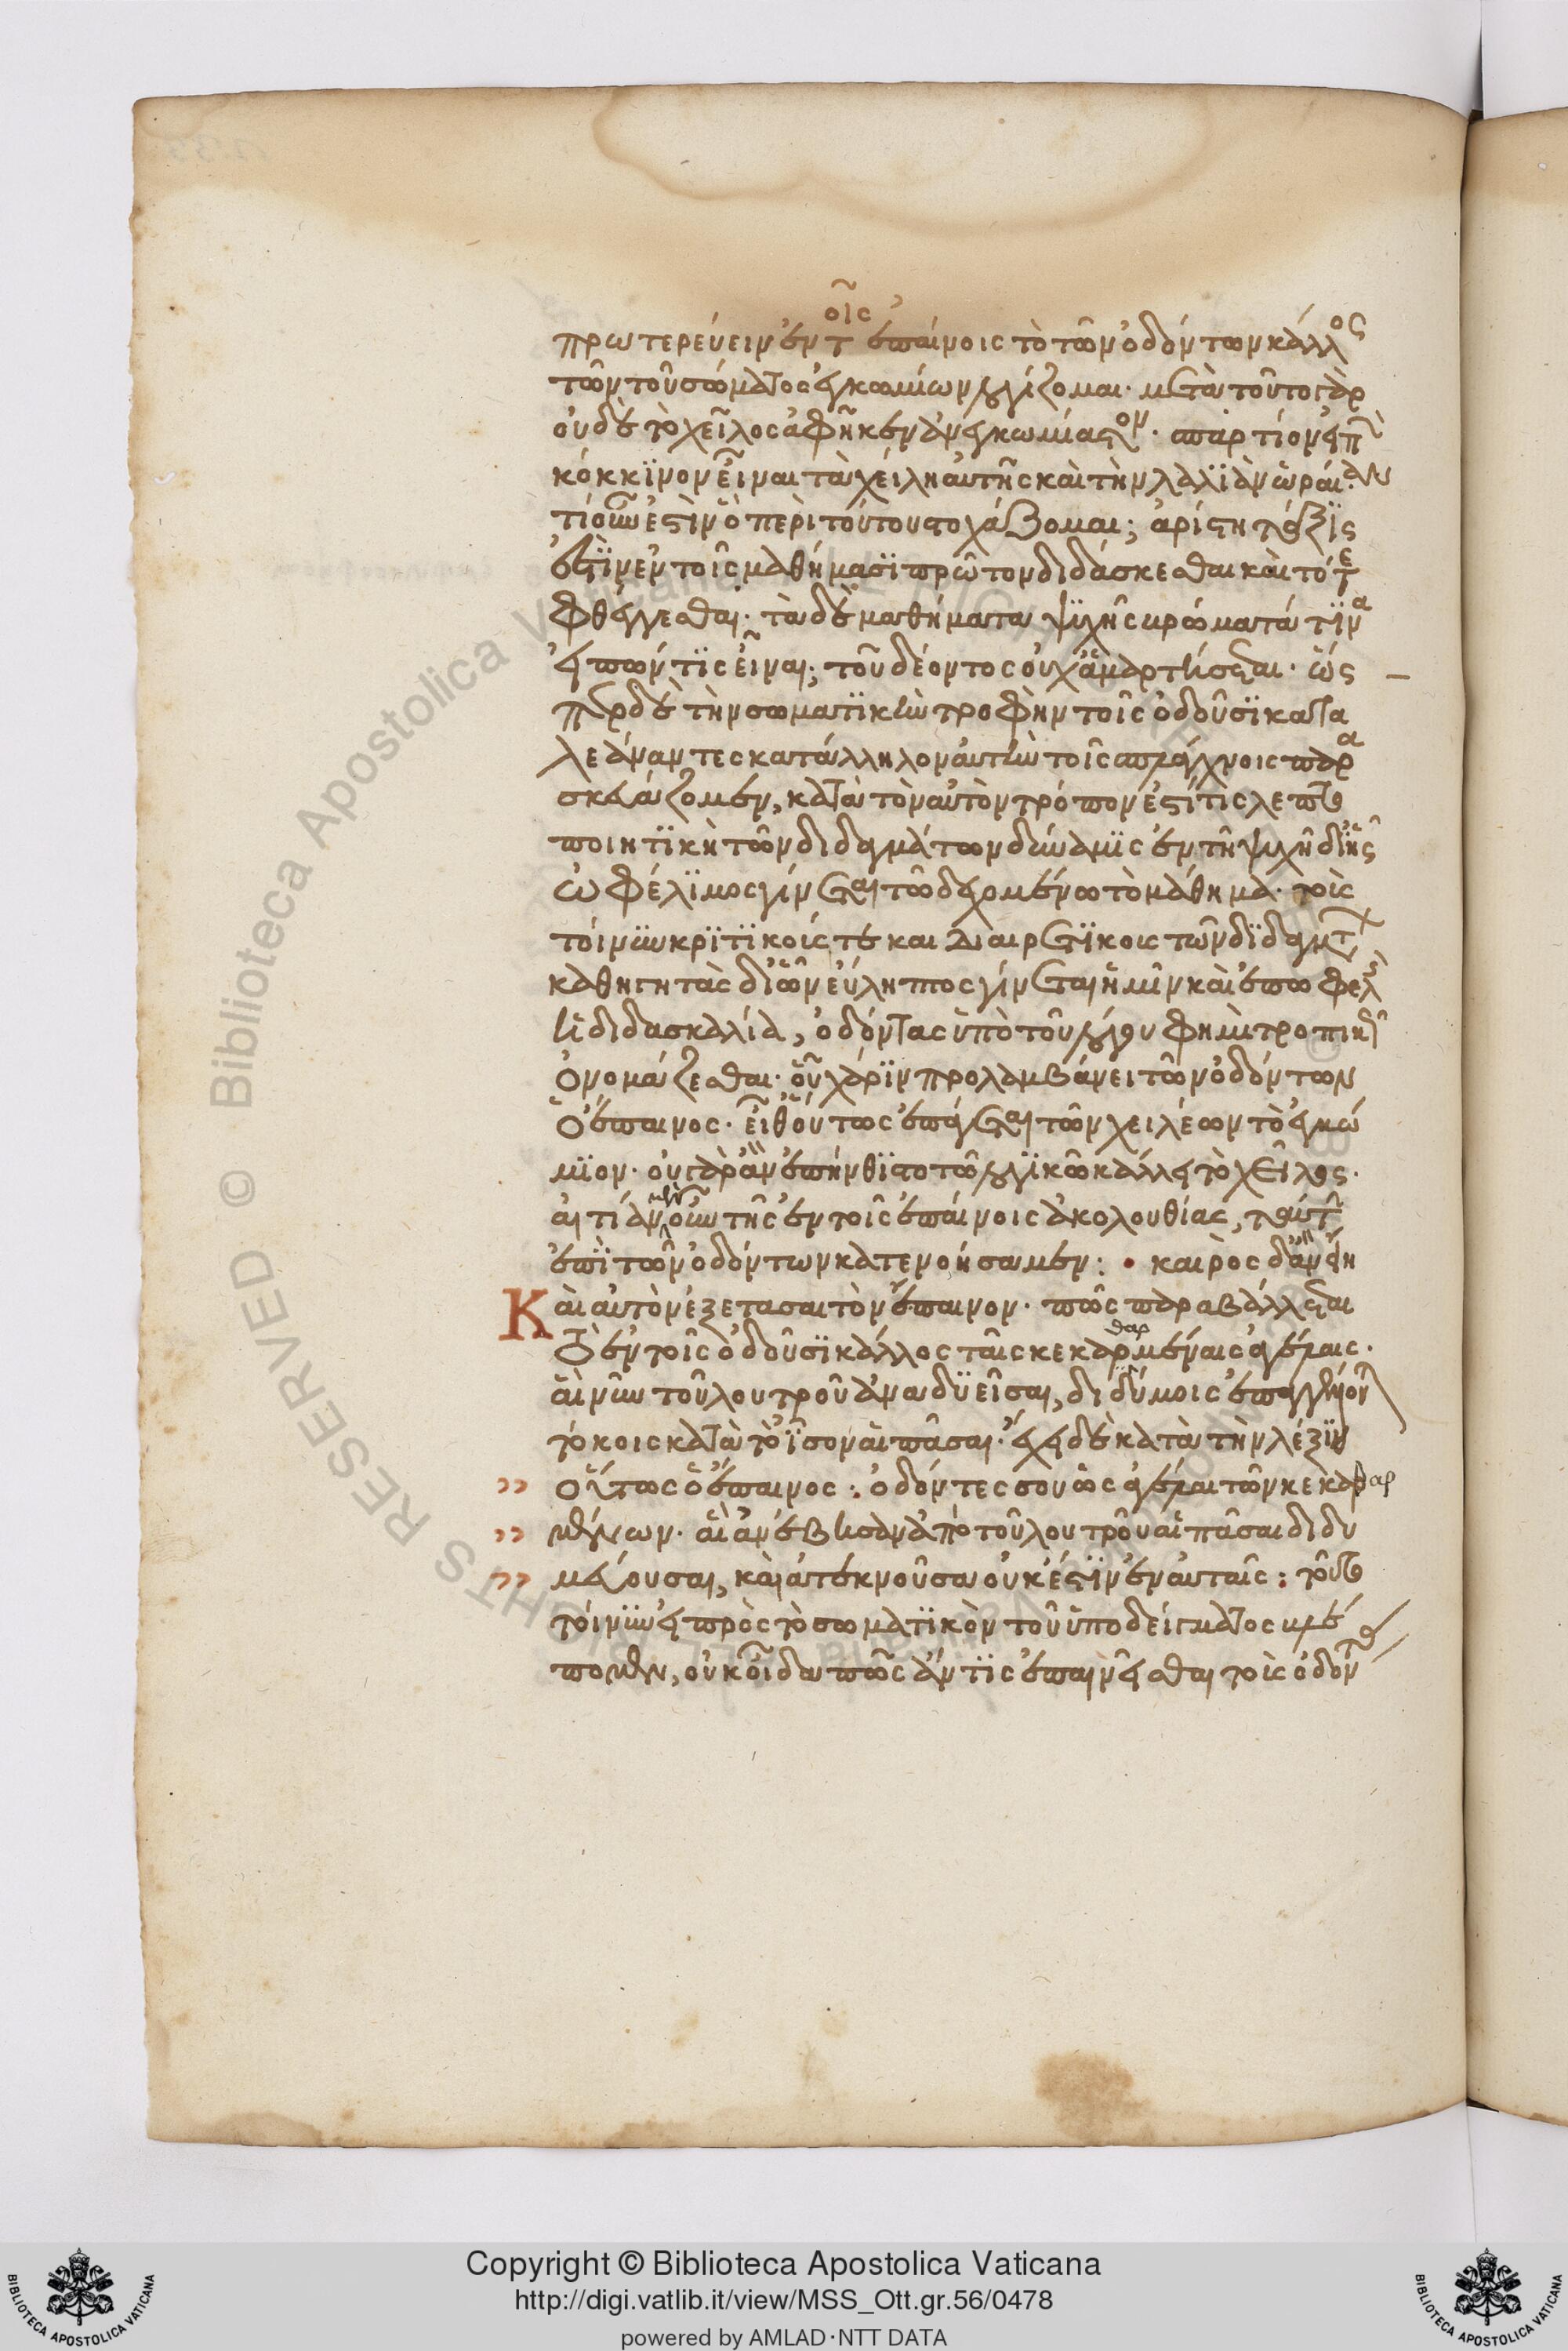 πρωτερεύειν ἐν τοῖς ἐπαίνοις τὸ τῶν ὀδόντων κάλλος
τῶν τοῦ σώματος ἐγκωμίων λογίζομαι· μετὰ τοῦτο γὰρ
οὐδὲ τὸ χεῖλος ἀφῆκεν ἀνεγκωμίαστον· σπαρτίον εἰπὼν
κόκκϊνον εἶναι τὰ χείλη αὐτῆς καὶ τὴν λαλϊὰν ὡραίαν
τί οὖν ἐστὶν ὃ περὶ τούτου στοχάζομαι; ἀρίστη τάξϊς
ἐστὶν ἐν τοῖς μαθήμασϊ πρῶτον διδάσκεσθαι καὶ τότε
φθέγγεσθαι· τὰ δὲ μαθήματα ψϋχῆς βρώματά τϊνα
εἰπών τϊς εἶναι; τοῦ δέοντος οὐχ ἁμαρτήσεται· ὥς
περ δὲ τὴν σωματϊκὴν τροφὴν τοῖς ὀδοῦσϊ κατα
λεάναντες κατάλληλον αὐτὴν τοῖς σπλάγχνοις παρα
σκευάζομεν, κατὰ τὸν αὐτὸν τρόπον ἐστί τις λεπτο
ποιητϊκὴ τῶν διδαγμάτων δύναμϊς ἐν τῇ ψυχῇ δι' ἧς
ὠφέλϊμος γίνεται τῷ δεχομένω τὸ μάθημα· τοὺς
τοίνϋν κρϊτϊκούς τε και διαιρετϊκους τῶν δϊδαγμάτων
καθηγητὰς δι' ὧν εὔληπτος γίνεται ἡμῖν καὶ ἐπωφελὴς
ἡ διδασκαλία, ὀδόντας ὑπὸ τοῦ λόγου φημὶ τροπικῶς
ὀνομάζεσθαι· οὗ χάρϊν προλαμβάνει τῶν ὀδόντων
ὁ ἔπαινος· εἶθ' οὕτως ἐπάγεται τῶν χειλέων τὸ ἐγκώ
μϊον· οὐ γὰρ ἂν ἐπήνθϊστο τῷ λογϊκῷ κάλλει τὸ χεῖλος·
αἰτίαν μὲν οὖν τῆς ἐν τοῖς ἐπαίνοις ἀκολουθίας, ταύτην
ἐπϊ τῶν ὀδόντων κατενοήσαμεν: • καιρὸς δ' ἂν εἴη
Καὶ αὐτὸν ἐξετασαι τὸν ἔπαινον· πῶς παραβάλλεται
τὸ ἐν τοῖς ὀδοῦσϊ κάλλος ταῖς κεκαρμέναις ἀγέλαις·
αἳ νῦν τοῦ λουτροῦ ἀναδϋεῖσαι, διδύμοις ἐπαγάλλονται
τόκοις κατὰ τὸ ἴσον αἱ πᾶσαι· ἔχει δὲ κατὰ τὴν λέξϊν
οὕτως ὁ ἔπαινος: ὀδόντες σου ὡς ἀγέλαι τῶν κεκαρ
μένων· αἳ ἀνέβησαν ἀπὸ τοῦ λουτροῦ αἱ πᾶσαι διδυ
μεύουσαι, καὶ ἀτεκνοῦσα οὐκ ἔστϊν ἐν αὐταῖς: τοῦτο
τοίνϋν εἰ πρὸς τὸ σωματϊκὸν τοῦ ὑποδείγματος βλέ
ποιμεν, οὐκ οἶδα πῶς ἄν τϊς ἐπαινεῖσθαι τοὺς ὀδόντας
Copyright © Biblioteca Apostolica Vaticana
http://digi.vatlib.it/view/MSS_Ott.gr.56/0478
powered by AMLAD·NTT DATA
BIBLIOTECA APOSTOLICA VATICANA
BIBLIOTECA APOSTOLICA VATICANA